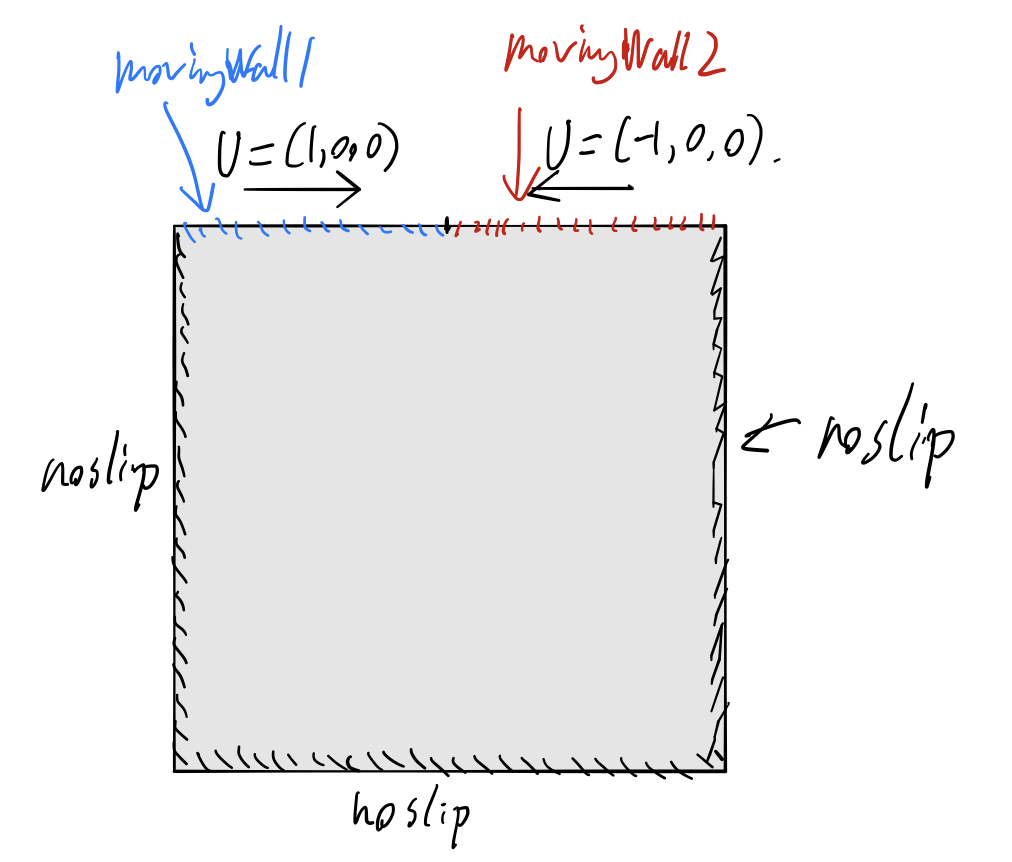 movingWall1
movingWall2
U=(1,0,0)
U=(-1,0,0).
noslip
noslip
noslip